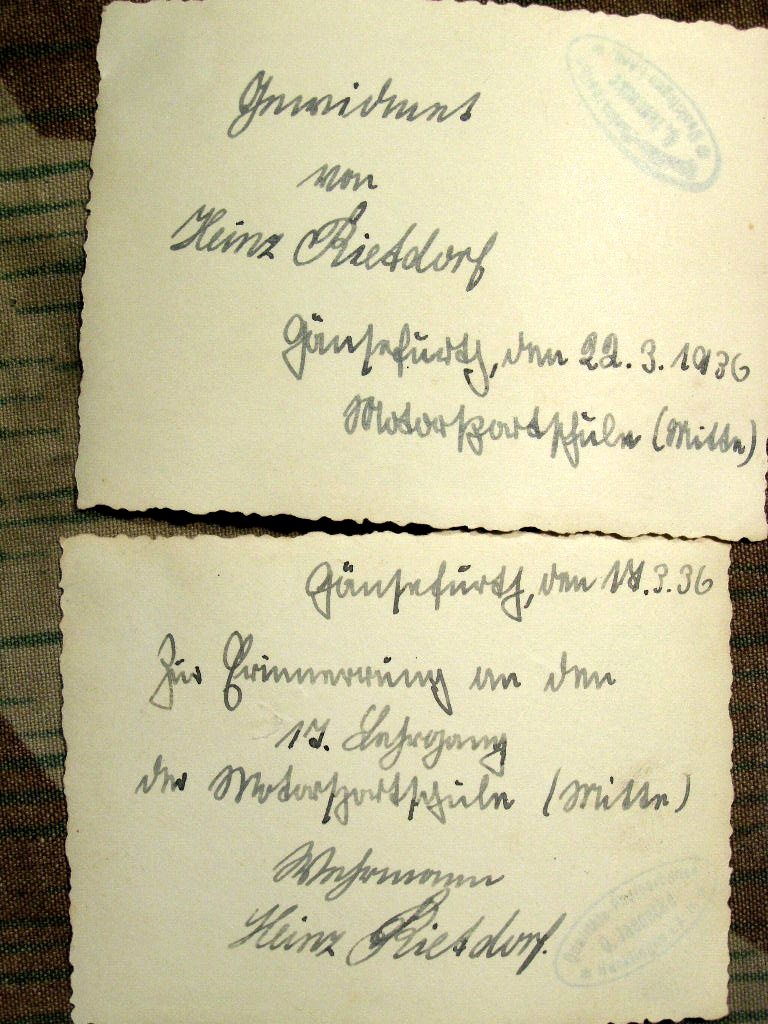 Gewidmet
von
Heinz Rietdorf
Gänsefurth, den 22.3.1936
Motorsportschule (Mitte)
Gänsefurth, den 17.3.36
Zur Erinnerrung an den
17. Lehrgang
der Motorsportschule (Mitte)
Wehrmann
Heinz Rietdorf.